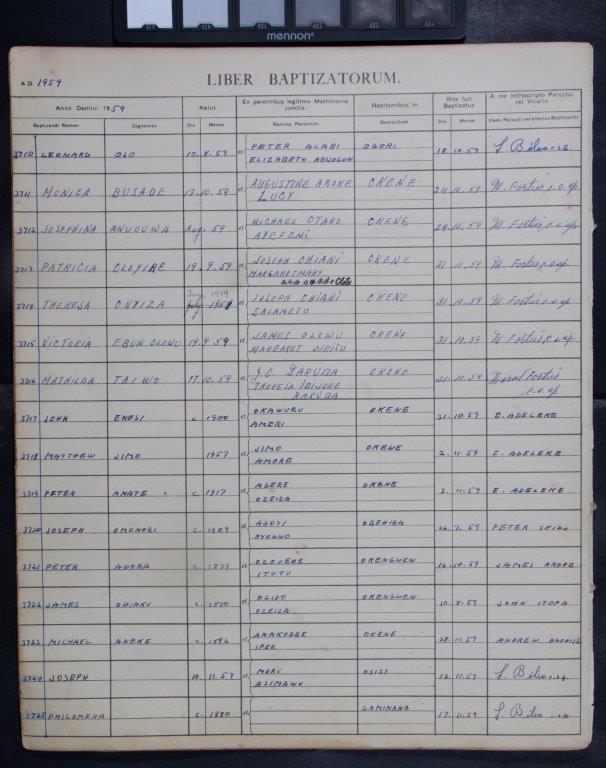 019 020 021 022 023 024
mennon
A.D. 1959
LIBER BAPTIZATORUM.
Anno Domini 1959 Natus Ex parentibus legitimo Matrimonio junctis Habitantibus in Rite fuit Baptizatus A me Infrascripto Parocho vel Vicario
Baptizandi Nomen Cognomen Die Mense Nomina Parentum Domicilium Die Mense Nom. Parochi vel alterius Baptizantis
3710 LEONARD OJO 15. 8. 59 et PETER ALABI OGORI 18. 10. 59
ELIZABETH
3711 MONICA BUSADE 17. 10. 59 et AUGUSTINE AROKE OKENE 24. 10. 59 M. Fortis, c.o.ap
LUCY
3712 JOSEPHINA Aug. 59 et MICHAEL OTARO OKENE 24. 10. 59 M. Fortis, c.o.ap
AYEFEMI
3713 PATRICIA 19. 9. 59 et JOSEPH OHIANI OKENE 31 10. 59 M. Fortis, c.o.ap
MARGARET MARY
3714 THERESA ONYIZA June 1959 et JOSEPH OHIANI OKENE 31. 10. 59 M. Fortis, c.o.ap
SALAMETU
3715 VICTORIA EBUN OLOWU 19. 9. 59 et JAMES OLOWU OKENE 31. 10. 59 M. Fortis, c.o.ap
MARGARET DIRISU
3716 MATHILDA TAIWO 17. 10. 59 et J.O. GARUBA OKENE 31. 10. 59 Fortis
THERESA c.o.ap
GARUBA
3717 JOHN ENESI c. 1900 et OKAWURU OKENE 31. 10. 59 E. ADELEKE
AMERI
3718 MATTHEW JIMO 1957 et JIMO OKENE 2. 11. 59 E. ADELEKE
AMORE
3719 PETER ANATE c. 1917 et AGERE OKENE 2. 11. 59 E. ADELEKE
OZEIZA
3720 JOSEPH OMONORI c. 1909 et AGOYI OBEHIRA 26. 7. 59 PETER SEIDU
3721 PETER ADORA c. 1877 et OZOVEHE OKENGWEN 16. 10. 59 JAMES AROKE
ITUTU
3722 JAMES OHIAKU c. 1880 et OGIDO OKENGWEN 10. 8. 59 JOHN ITOPA
OZEIZA
3723 MICHAEL ANEKE c. 1886 et ANAKOGBE OKENE 28. 11. 59 ANDREW
IPEE
3724 JOSEPH 10. 11. 59 et MORU OSISI 13. 11. 59
ASIMAWU
3725 PHILOMENA c. 1880 et GAMINANA 17. 11. 59